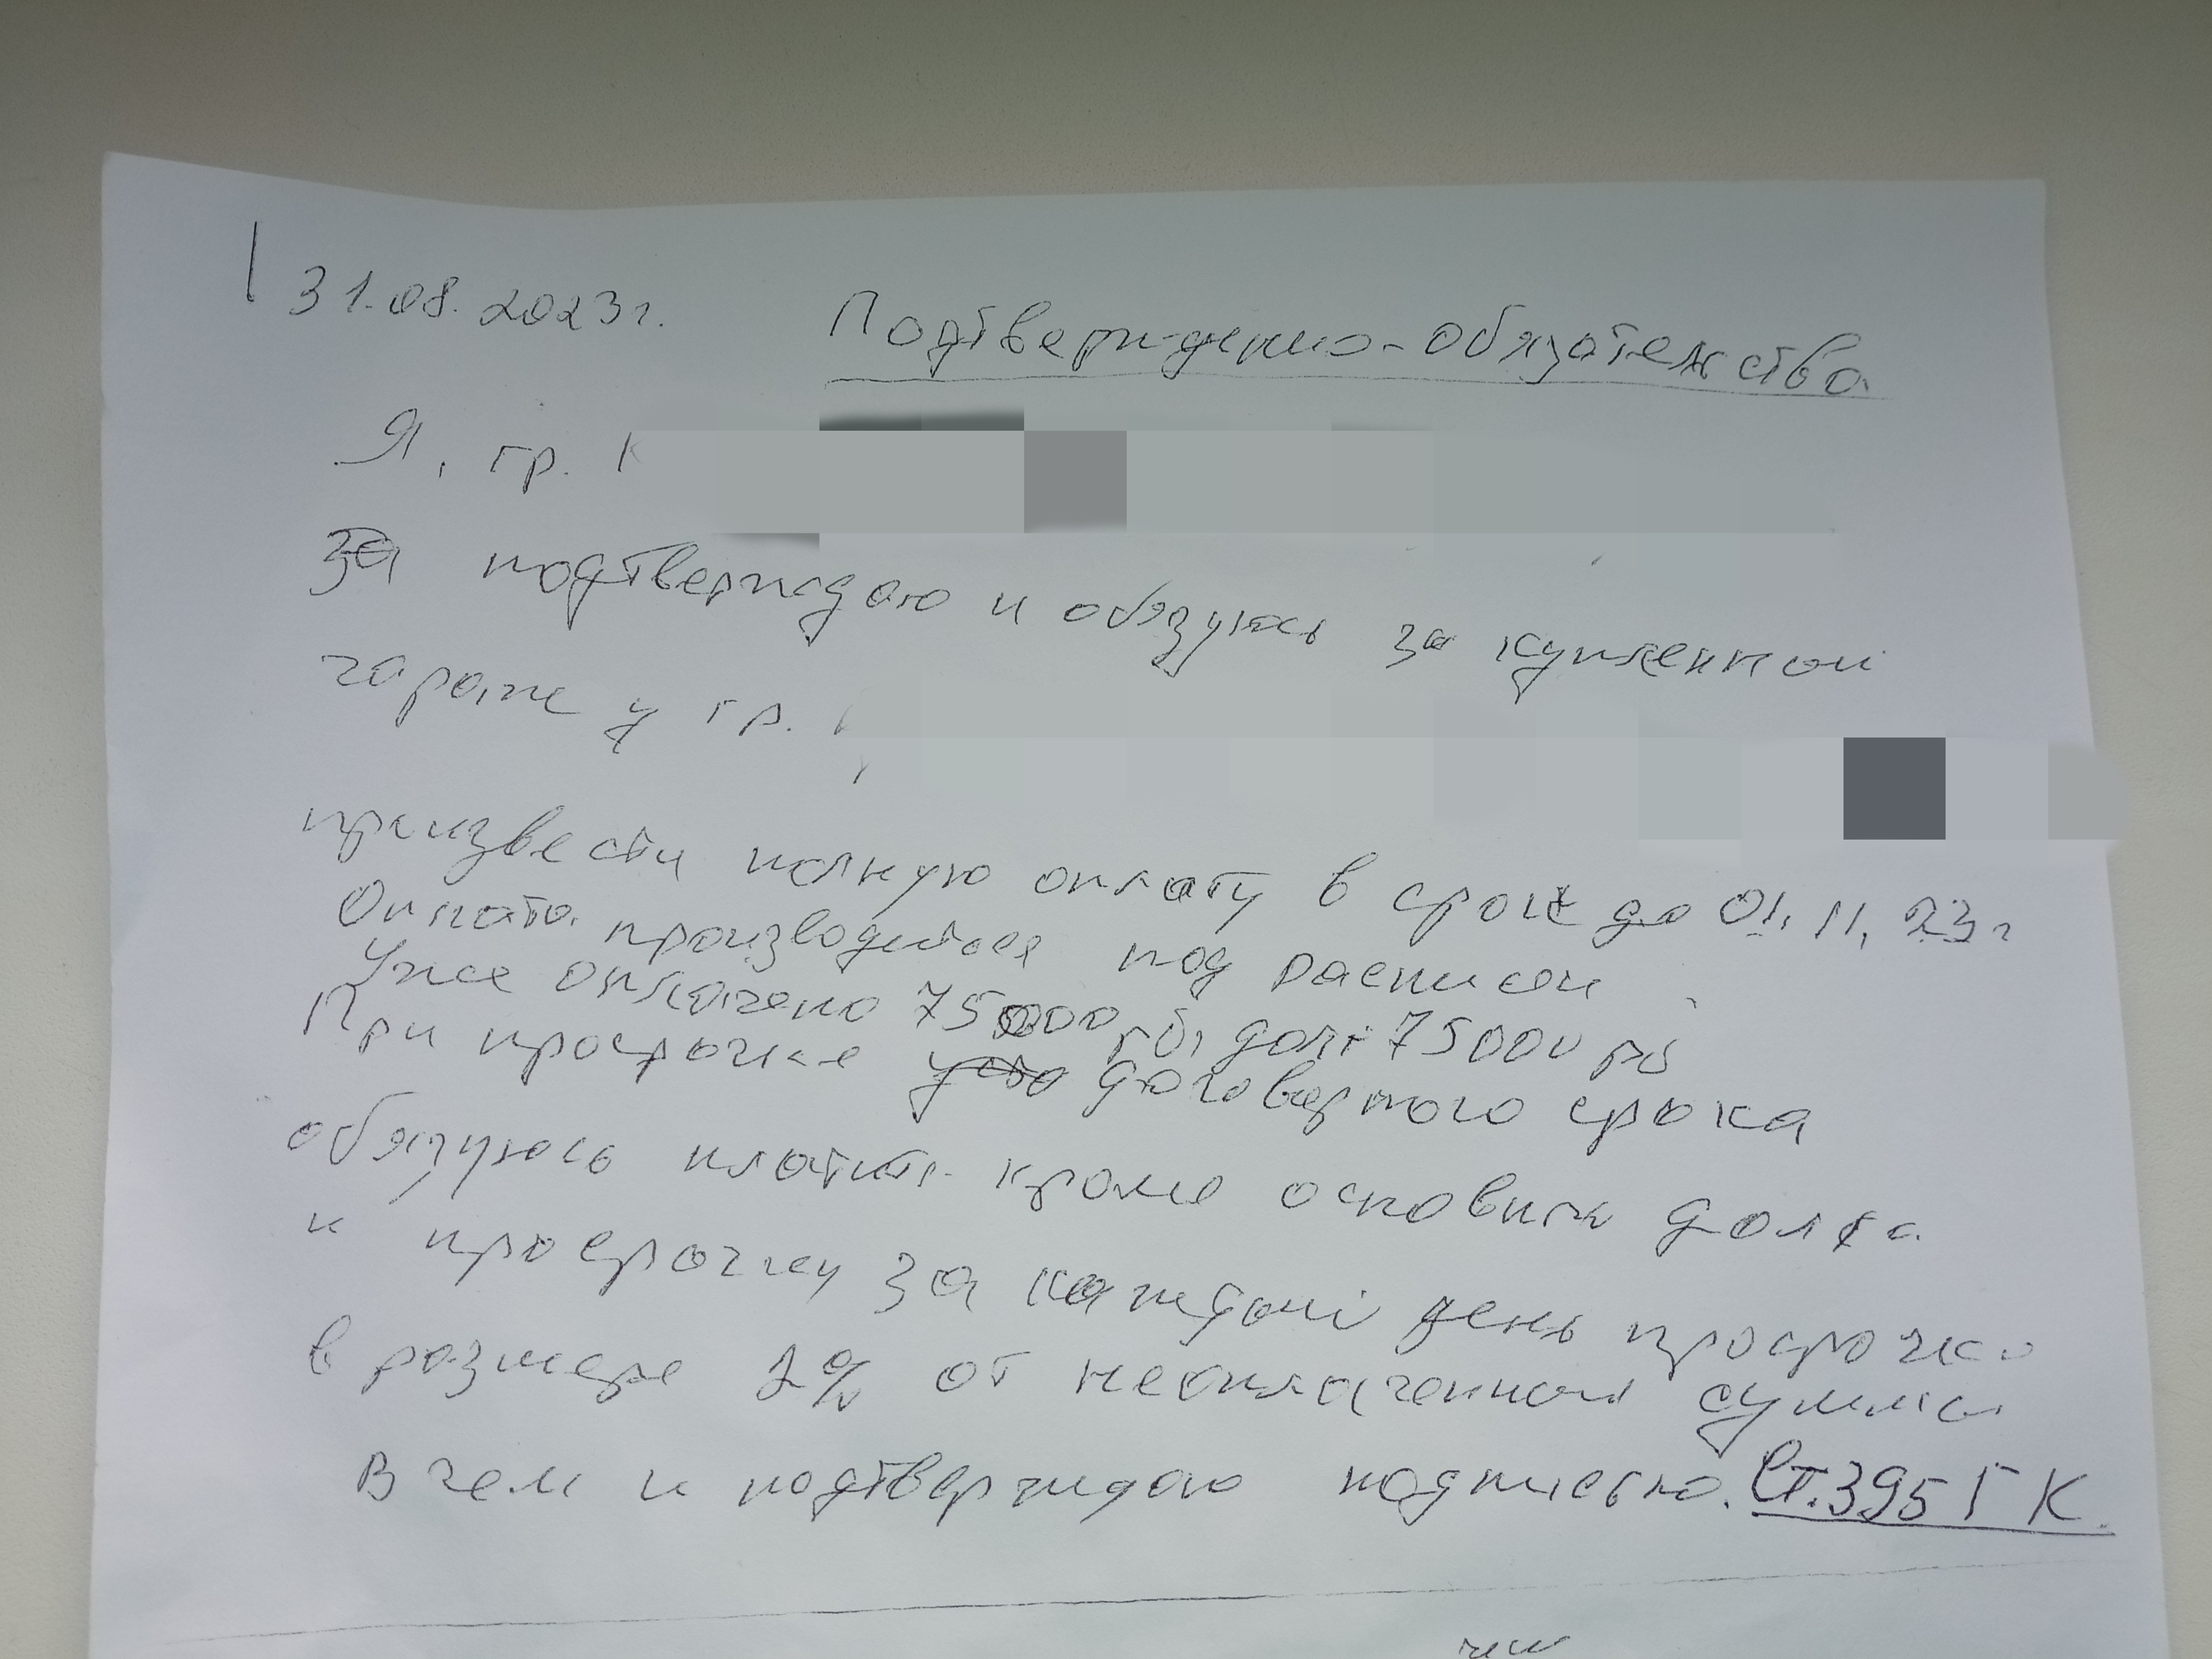 31.08.2023г. Подтверждение-обязательство
Я, гр. К
За подтверждаю и обязуюсь за купленной
гараж у гр.
произвести полную оплату в срок до 01.11.23г
Оплата производится под расписки
Уже оплачено 75000 рб, долг 75000 рб
При просрочке договорного срока
обязуюсь платить кроме основного долга
и просрочку за каждый день просрочки
в размере % от неоплаченной суммы
В чем и подтверждаю подписью. Ст.395 ГК.